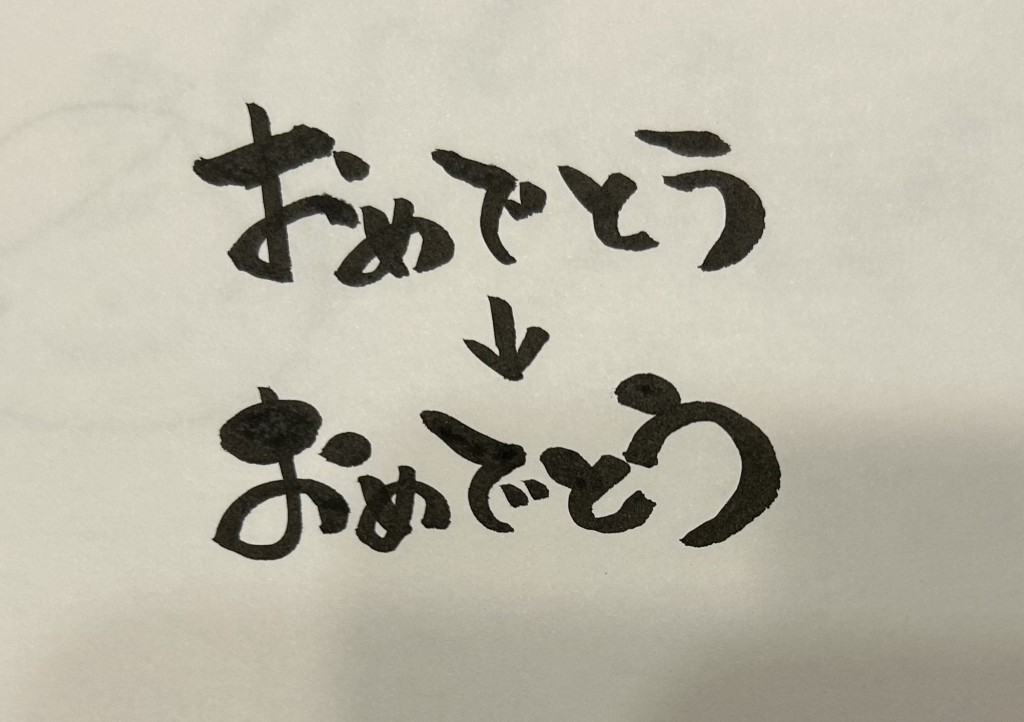 おめでとう
↓
おめでとう